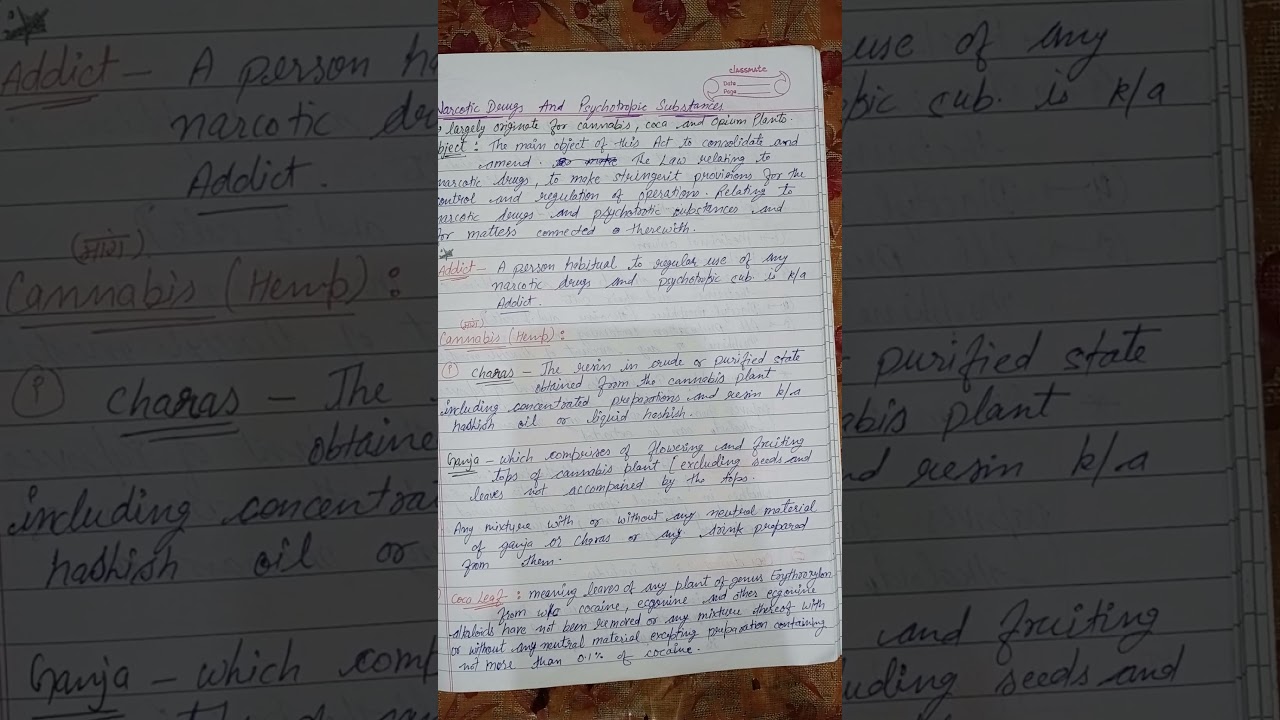 classmate
Date
Page
Narcotic Drugs And Psychotropic Substances
largely originate for cannabis, coca and opium Plants.
bject : The main object of this Act to consolidate and
amend. The Law relating to
narcotic drugs, to make stringerit provisions for the
control and regulation of operations. Relating to
narcotic drugs and psychotrotic substances and
for matters connected therewith.
Addict - A person habitual to regular use of any
narcotic drugs and psychotropic sub. is k/a
Addict.
(भांग)
Cannabis (Hemp) :
charas - The resin in crude or purified state
obtained from the cannabis plant
including concentrated preparations and resin k/a
hashish oil or liquid hashish.
Ganja - which comprises of flowering and fruiting
tops of cannabis plant [excluding seeds and
leaves not accompanied by the tops.
Any mixture with or without any neutral material
of ganja or charas or any drink prepared
from them.
Coco Leaf : meaning leaves of any plant of genus Erythroxylon
from wc cocaine, esgonine and other ecgonine
alkaloids have not been removed or any mixture thereof with
or without any neutral material excepting preparation containing
not more than 0.1% of cocaine.